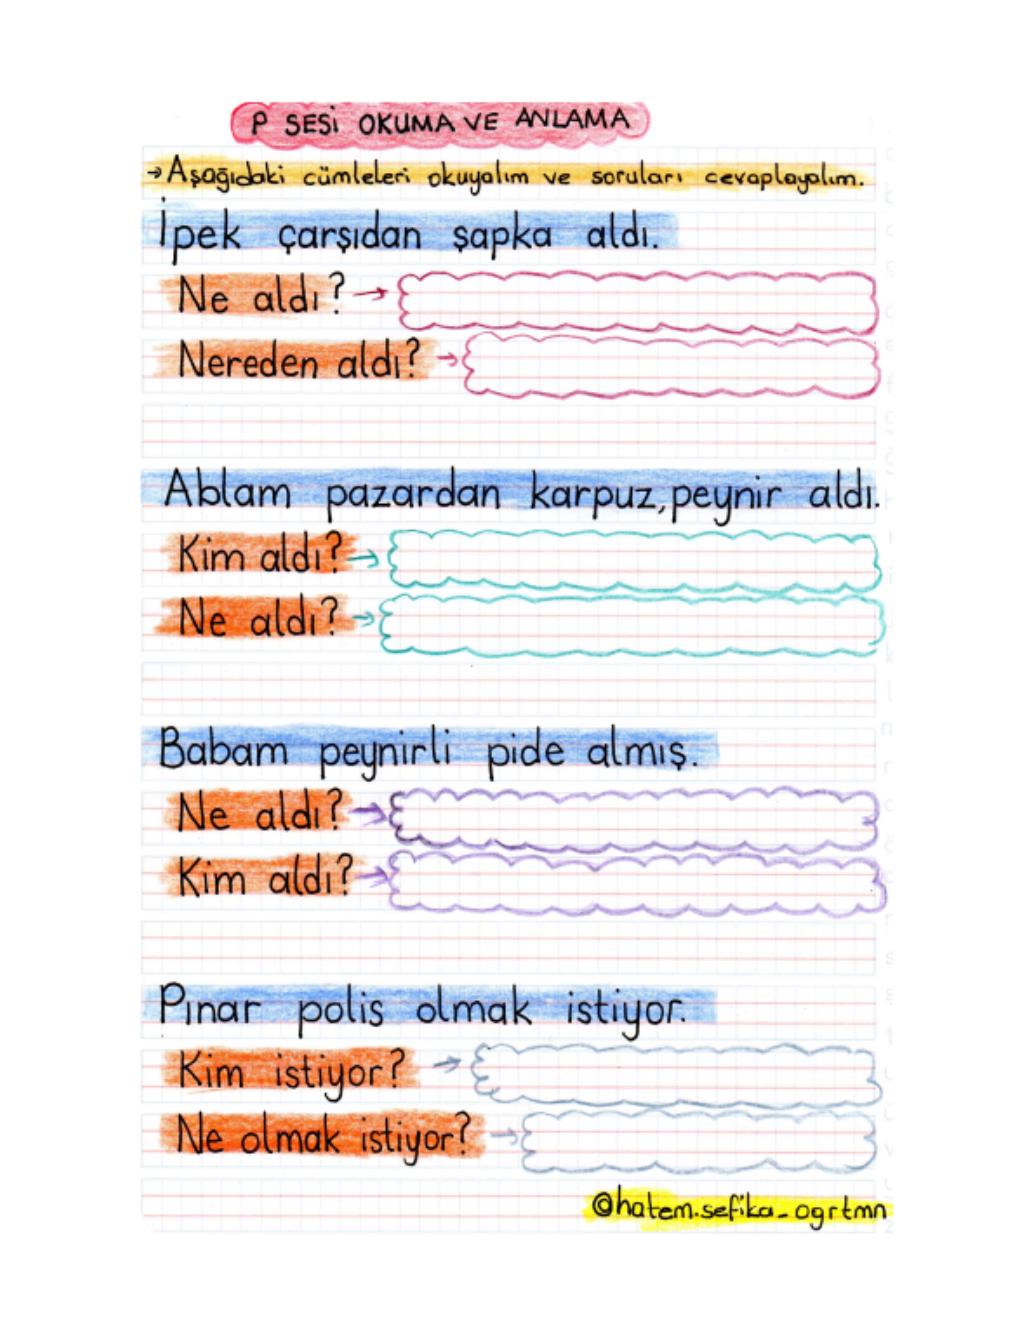 P SESİ OKUMA VE ANLAMA
→ Aşağıdaki cümleleri okuyalım ve soruları cevaplayalım.
İpek çarşıdan şapka aldı.
Ne aldı? →
Nereden aldı? →
Ablam pazardan karpuz, peynir aldı.
Kim aldı? →
Ne aldı? →
Babam peynirli pide almış.
Ne aldı? →
Kim aldı? →
Pınar polis olmak istiyor.
Kim istiyor? →
Ne olmak istiyor? →
@hatem.sefika_ogrtmn